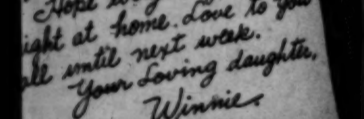 Hope
ight at home. Love to you
all until next week.
Your Loving daughter,
Winnie.